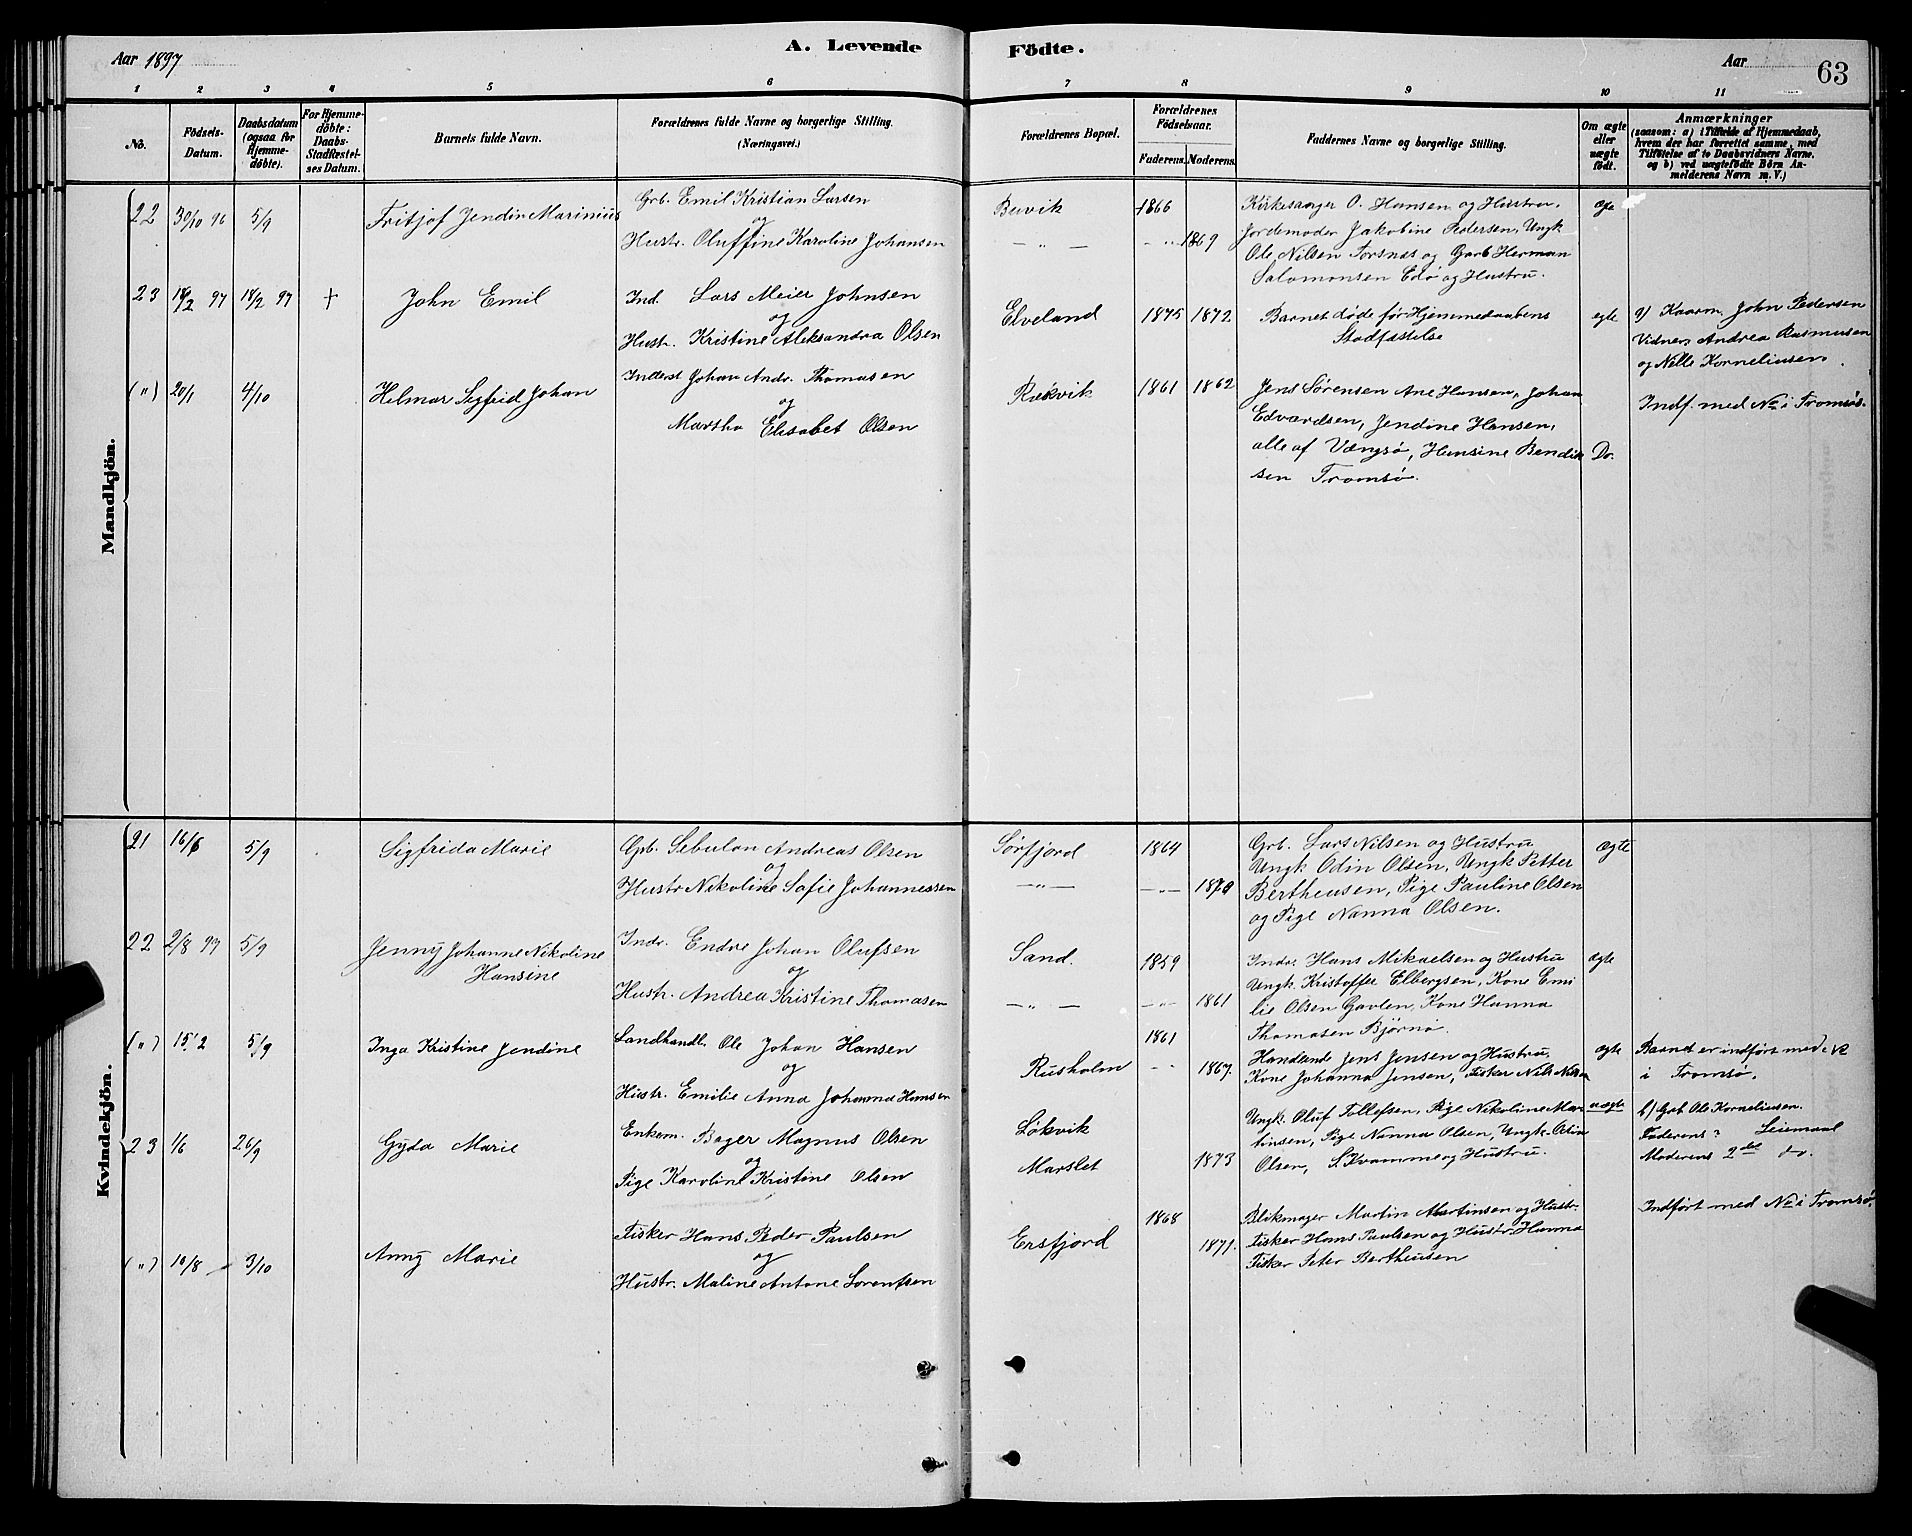 Aar 1897
A. Levende
Födte.
Aar
63
1 2 3 4 5 6 7 8 9 10 11
No.
Födsels-
Datum.
Daabsdatum
(ogsaa for
Hjemme-
döbte).
For Hjemme-
döbte:
Daabs-
Stadfæstel-
ses Datum.
Barnets fulde Navn.
Forældrenes fulde Navne og borgerlige Stilling.
(Næringsvei.)
Forældrenes Bopæl.
Forældrenes
Födselsaar.
Faderens. Moderens.
Faddernes Navne og borgerlige Stilling.
Om ægte
eller
uægte
födt.
Anmærkninger
(saasom: a) i Tilfælde af Hjemmedaab,
hvem der har forrettet samme, med
Tilföielse af to Daabsvidners Navne,
og b) ved uægtefödte Börn An-
melderens Navn m. V.)
Mandkjön.
22 30/10 96 5/9 Fritjof Jendin Marinius
Grb. Emil Kristian Larsen
og
Hustr. Oluffine Karoline Johansen
Buvik 1866
— " — 1869
Kirkesanger O. Hansen og Hustru,
Jordemoder Jakobine Pedersen, Ungk
Ole Nilsen Torsnes og Garb Herman
Salomonsen Edø og Hustru.
23 18/2 97 18/2 97 + John Emil
Ind. Lars Meier Johnsen
og
Hustr. Kristine Aleksandra Olsen
Elveland 1875 1872
Barnet døde før Hjemmedaabens
Stadfæstelse
egte
a) Kaarm. John Pedersen
Vidner, Andrea Rasmusen
og Nelle Korneliusen.
(") 20/1 4/10 Helmar Sigfrid Johan
Inderst Johan Andr. Thomasen
og
Martha Elisabet Olsen
Rækvik 1861 1862
Jens Sørensen Ane Hansen, Johan
Edvardsen, Jendine Hansen,
alle af Vængsø, Hansine Bendik
sen Tromsø.
Do.
Indf. med No i Tromsø.
Kvindekjön.
21 16/6 5/9 Sigfrida Marie
Gpb. Sebulon Andreas Olsen
og
Hustr Nikoline Sofie Johannessen
Sørfjord 1864
— " — 1870
Grb. Lars Nilsen og Hustru
Ungk Odin Olsen, Ungk Petter
Bertheusen, Pige Pauline Olsen
og Pige Nanna Olsen.
ægte
22 2/8 97 5/9 Jenny Johanne Nikoline
Hansine
Indr. Endre Johan Olufsen
og
Hustr. Andrea Kristine Thomasen
Sand. 1859
— " — 1861
Indr. Hans Mikaelsen og Hustru
Ungk. Kristoffer Elbergsen, Kone Emi
lie Olsen Gavlen, Kone Hanna
Thomasen Bjørnø.
ægte
(") 15/2 5/9 Inga Kristine Jendine
Landhandl. Ole Johan Hansen
og
Hustr. Emilie Anna Johanna Hansen
Rusholm 1861
1867.
Handlande Jens Jensen og Hustru,
Kone Johanna Jensen, Fisker Nils Nilsen
ægte
Barnet er indført med No
i Tromsø.
23 1/6 26/9 Gyda Marie
Enkem. Bager Magnus Olsen
og
Pige Karoline Kristine Olsen
Løkvik
Marslet 1873
Ungk. Oluf Tollefsen, Pige Nikoline Mar-
tinsen, Pige Nanna Olsen, Ungk. Odin
Olsen, S. Kvamme og Hustru.
uægte
b) Grb Ole Korneliusen.
Faderens ? Leiemaal
Moderens 2det do.
(") 10/8 3/10 Anny Marie
Fisker Hans Peder Paulsen
og
Hustr. Maline Antone Lorentsen
Ersfjord 1868
1871.
Blikmager Martin Martinsen og Hustr.
Fisker Hans Paulsen og Hustr Hanna
Fisker Peter Bertheusen
Indført med No i Tromsø